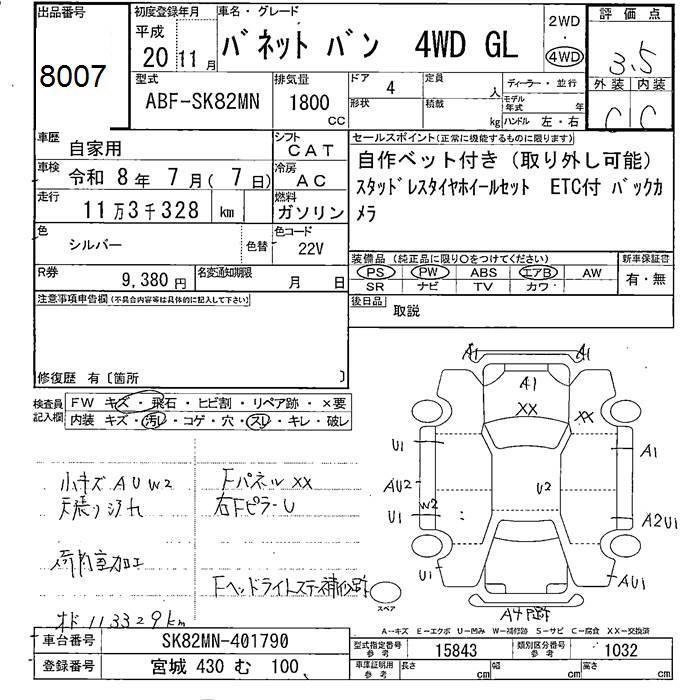 出品番号
8007
初度登録年月
平成
20 11 月
車名・グレード
バネット バン 4WD GL
2WD
・
4WD
評価点
3.5
外装 内装
C C
型式
ABF-SK82MN
排気量
1800
CC
ドア 4
形状
定員
人
積載
kg
ディーラー・並行
モデル年式 年
ハンドル 左・右
車歴
自家用
シフト
CAT
車検
令和 8 年 7 月 ( 7 日)
冷房
AC
走行
11 万 3 千 328 km
燃料
ガソリン
色
シルバー
色替
色コード
22V
R券
9,380 円
名変通知期限
月 日
セールスポイント(正常に機能するものに限ります)
自作ベット付き (取り外し可能)
スタッドレスタイヤホイールセット ETC付 バックカ
メラ
装備品 (純正品に限り○をつけてください)
PS PW ABS エアB AW
SR ナビ TV カワ
新車保証書
有・無
後日品
取説
注意事項申告欄(不具合内容等は具体的に記入して下さい)
修復歴 有〔箇所 〕
検査員
記入欄
FW キズ・飛石・ヒビ割・リペア跡・×要
内装 キズ・汚レ・コゲ・穴・スレ・キレ・破レ
小キズ A U W2
天張り汚れ
荷内室加工
オド 113329km
Fパネル XX
右Fピラー U
Fヘッドライトステー補修跡
A1 A1
A1
XX
XX
U1
A1
U2
AU2
W2
U1
A2U1
U1
AU1
A4 凹跡
スペア
A--キズ E--エクボ U--凹み W--補修跡 S--サビ C--腐食 XX--交換済
車台番号
SK82MN-401790
登録番号
宮城 430 む 100
型式指定番号
参考
15843
類別区分番号
参考
1032
車庫証明用
参考
長さ cm
幅 cm
高さ cm